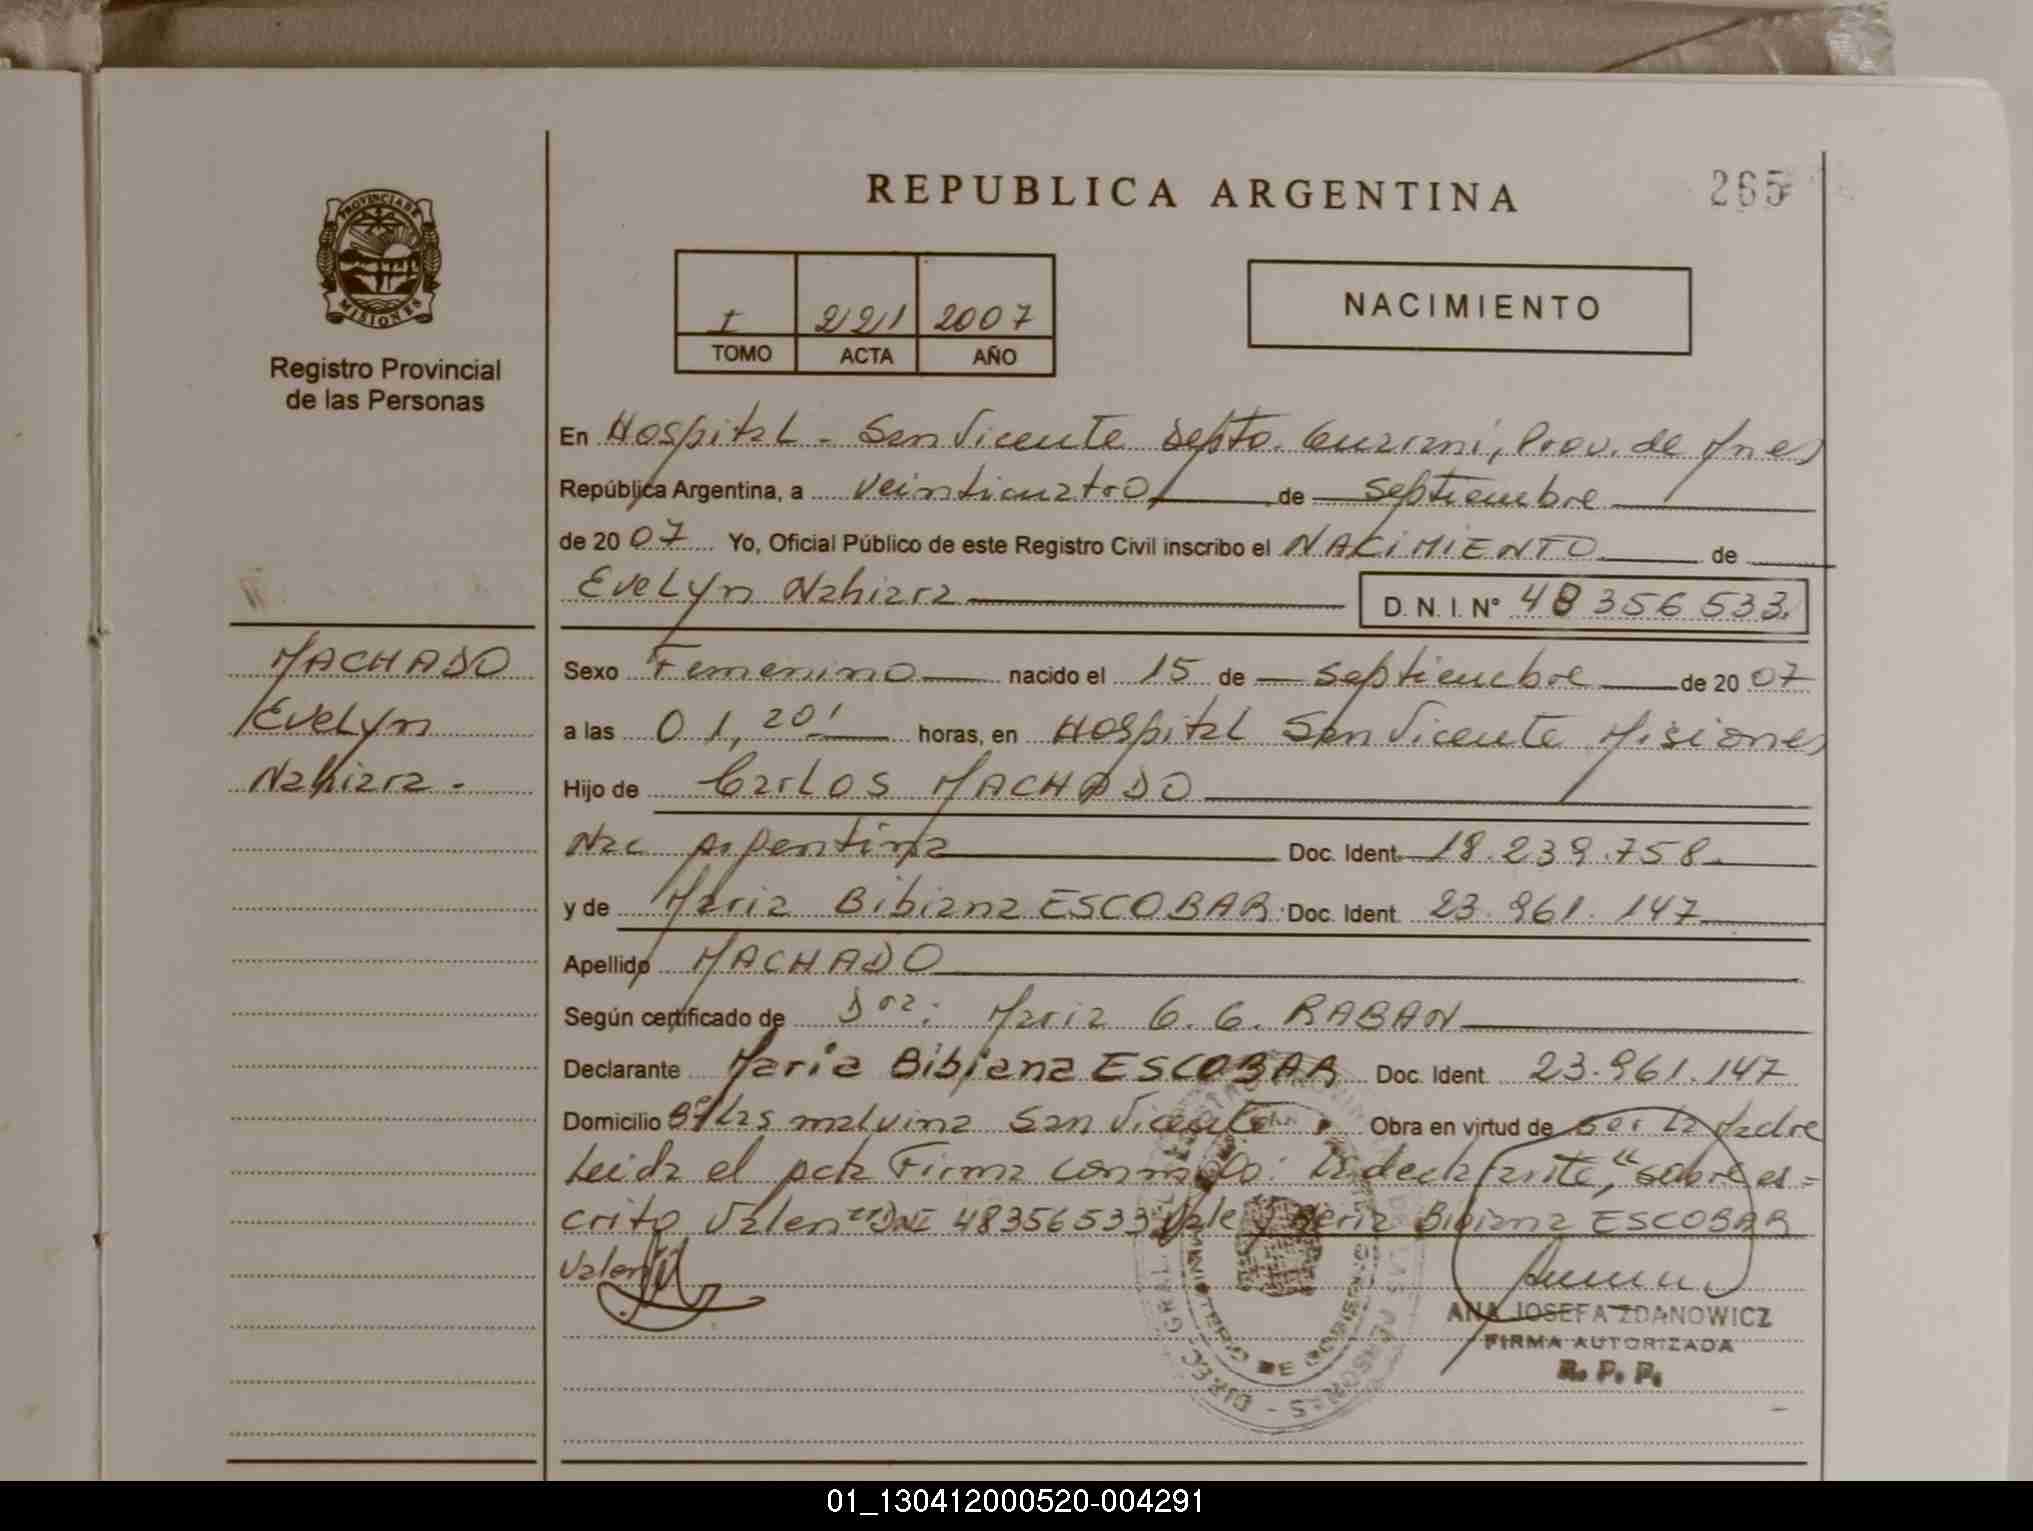 REPUBLICA ARGENTINA
265
PROVINCIA DE
MISIONES
Registro Provincial
de las Personas
I 221 2007
TOMO ACTA AÑO
NACIMIENTO
En Hospital - San Vicente Depto. Guarani, Prov. de Mnes
República Argentina, a veinticuatro de septiembre
de 2007 Yo, Oficial Público de este Registro Civil inscribo el NACIMIENTO de
Evelyn Nahiara D. N. I. N° 48 356 533.
MACHADO
Evelyn
Nahiara -
Sexo Femenino nacido el 15 de septiembre de 2007
a las 01,20' horas, en Hospital San Vicente Misiones
Hijo de Carlos MACHADO
Nac Argentina Doc. Ident. 18.239.758
y de Maria Bibiana ESCOBAR Doc. Ident. 23.961.147
Apellido MACHADO
Según certificado de Dra: Maria G. G. RABAN
Declarante Maria Bibiana ESCOBAR Doc. Ident. 23.961.147
Domicilio Bº Las malvina San Vicente Obra en virtud de ser la Madre
Leida el acta Firma conmigo: la declarante, "sobre es=
crito Valen "DNI 48356533 Vale y Maria Bibiana ESCOBAR
Valen
MINISTERIO DE GOBIERNO
ANA JOSEFA ZDANOWICZ
FIRMA AUTORIZADA
R. P. P.
01_130412000520-004291